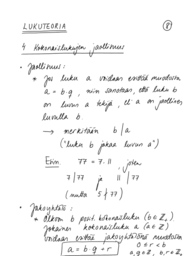 LUKUTEORIA
8
1. Kokonaislukujen jaollisuus:
• Jaollisuus:
• Jos luku a voidaan esittää muodossa
a = b·q , niin sanotaan, että luku b
on luvun a tekijä, el. a on jaollinen
luvulla b.
→ merkitään b | a
("luku b jakaa luvun a")
Esim 77 = 7·11 , joten
7 | 77 ja 11 | 77
(mutta 5 ∤ 77)
• Jakoyhtälö:
• Olkoon b posit. kokonaisluku (b∈Z₊)
Jokainen kokonaisluku a (a∈Z)
voidaan esittää jakoyhtälönä muodossa
a = b·q + r
0 ≤ r < b